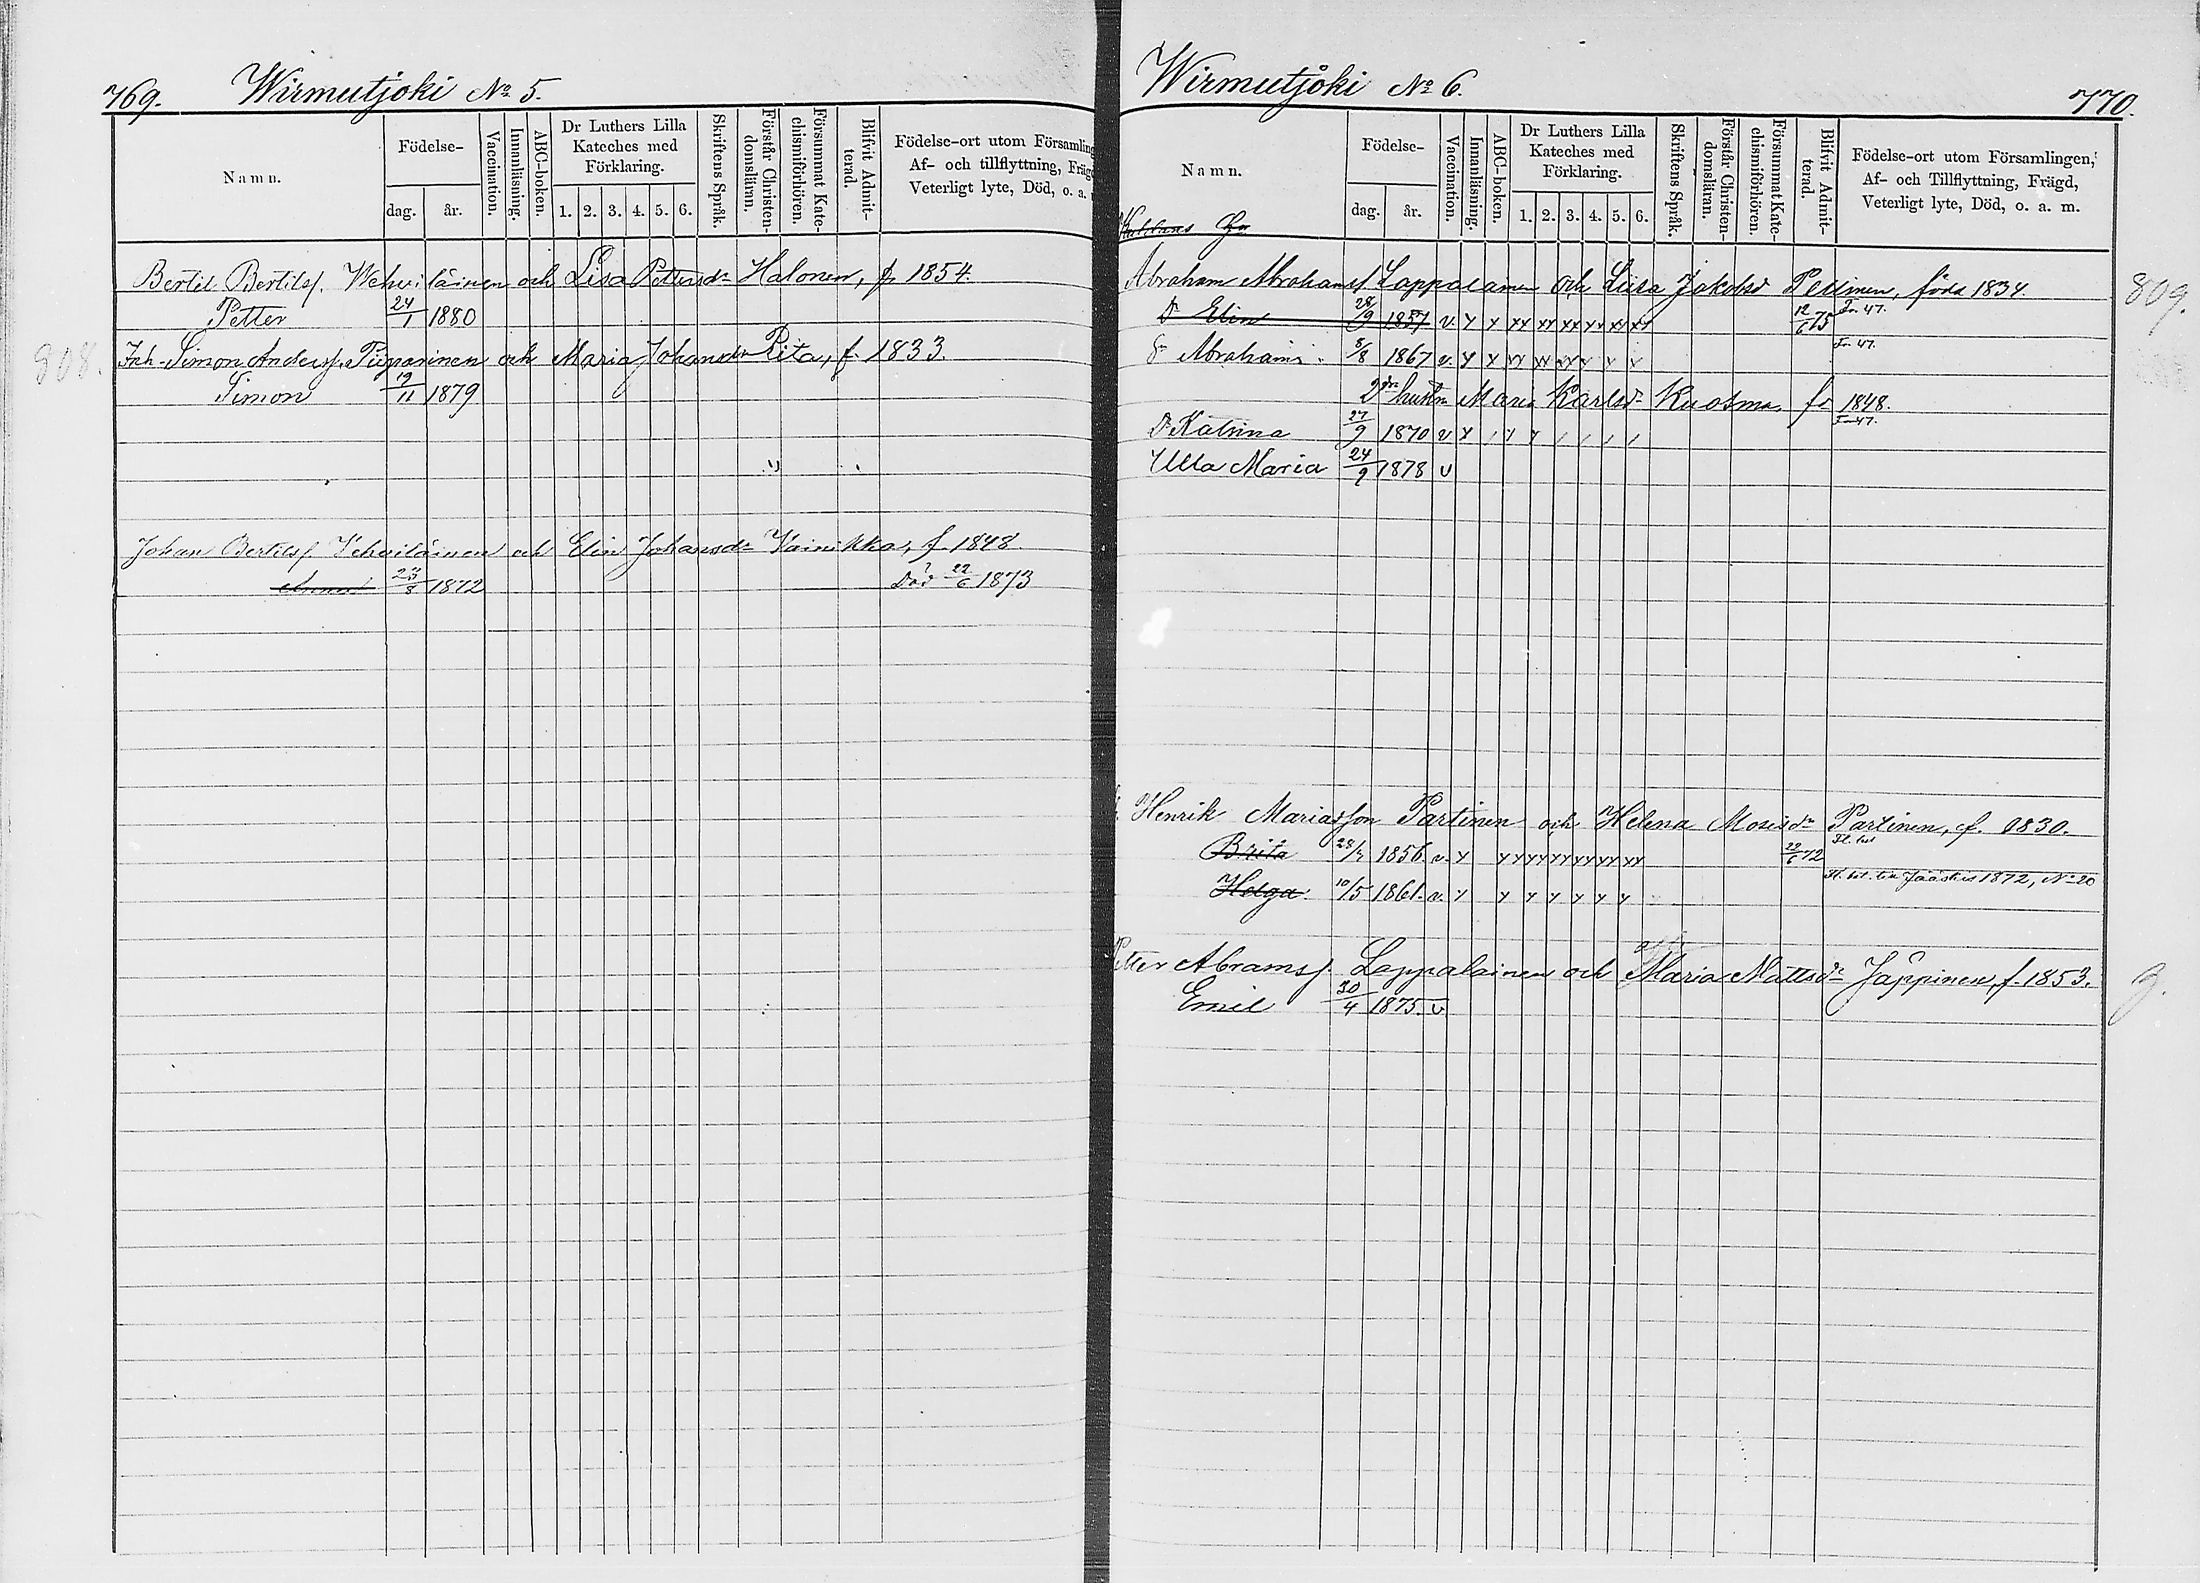 769. Wirmutjoki No 5.
Namn.
Födelse-
dag. år.
Vaccination.
Innanläsning.
ABC-boken.
Dr Luthers Lilla
Kateches med
Förklaring.
1. 2. 3. 4. 5. 6.
Skriftens Språk.
Förstår Christen-
domsläran.
Försummat Kate-
chismiförhören.
Blifvit Admit-
terad.
Födelse-ort utom Församling
Af- och tillflyttning, Fräg
Veterligt lyte, Död, o. a.
Bertil Bertilss. Wehviläinen och Lisa Pettersdr Halonen, f. 1854.
Petter 24/1 1880
808. Inh. Simon Anderss. Piipponinen och Maria Johansdr Rita, f. 1833.
Simon 19/11 1879
Johan Bertilss. Vehviläinen och Elin Johansdr Vainikka, f. 1848.
1872 Död 22/6 1873
Wirmutjoki No 6. 770.
Namn.
Födelse-
dag. år.
Vaccination.
Innanläsning.
ABC-boken.
Dr Luthers Lilla
Kateches med
Förklaring.
1. 2. 3. 4. 5. 6.
Skriftens Språk.
Förstår Christen-
domsläran.
Försummat Kate-
chismiförhören.
Blifvit Admit-
terad.
Födelse-ort utom Församlingen,
Af- och Tillflyttning, Frägd,
Veterligt lyte, Död, o. a. m.
Abraham Abrahamss. Lappalainen och Liisa Jakobsd Pessinen, föda 1834. 809.
Dr Elin 28/9 1857 v. y x xx xx xx xx xx xx 12/6 75 Fr. 47.
Abraham 8/8 1867 v. y x xx xx xx x x x Fr. 47.
2dra hustrun Maria Karlsdr Kuosma, fd 1848.
Dr Katrina 27/9 1870 v y / y y / / / / Fr 47.
Ulla Maria 24/9 1878 v
Henrik Mariasson Partinen och Helena Mosesdr Partinen, f. 1830.
Brita 1856. v. y yy yy yy yy yy yy 22/6 72
Helga 10/5 1861. v. y y y y y y y Fl. bet. till Jääskis 1872, No 20
Petter Abramss. Lappalainen och Maria Mattsdr Jäppinen, f. 1853.
Emil 30/4 1875. v